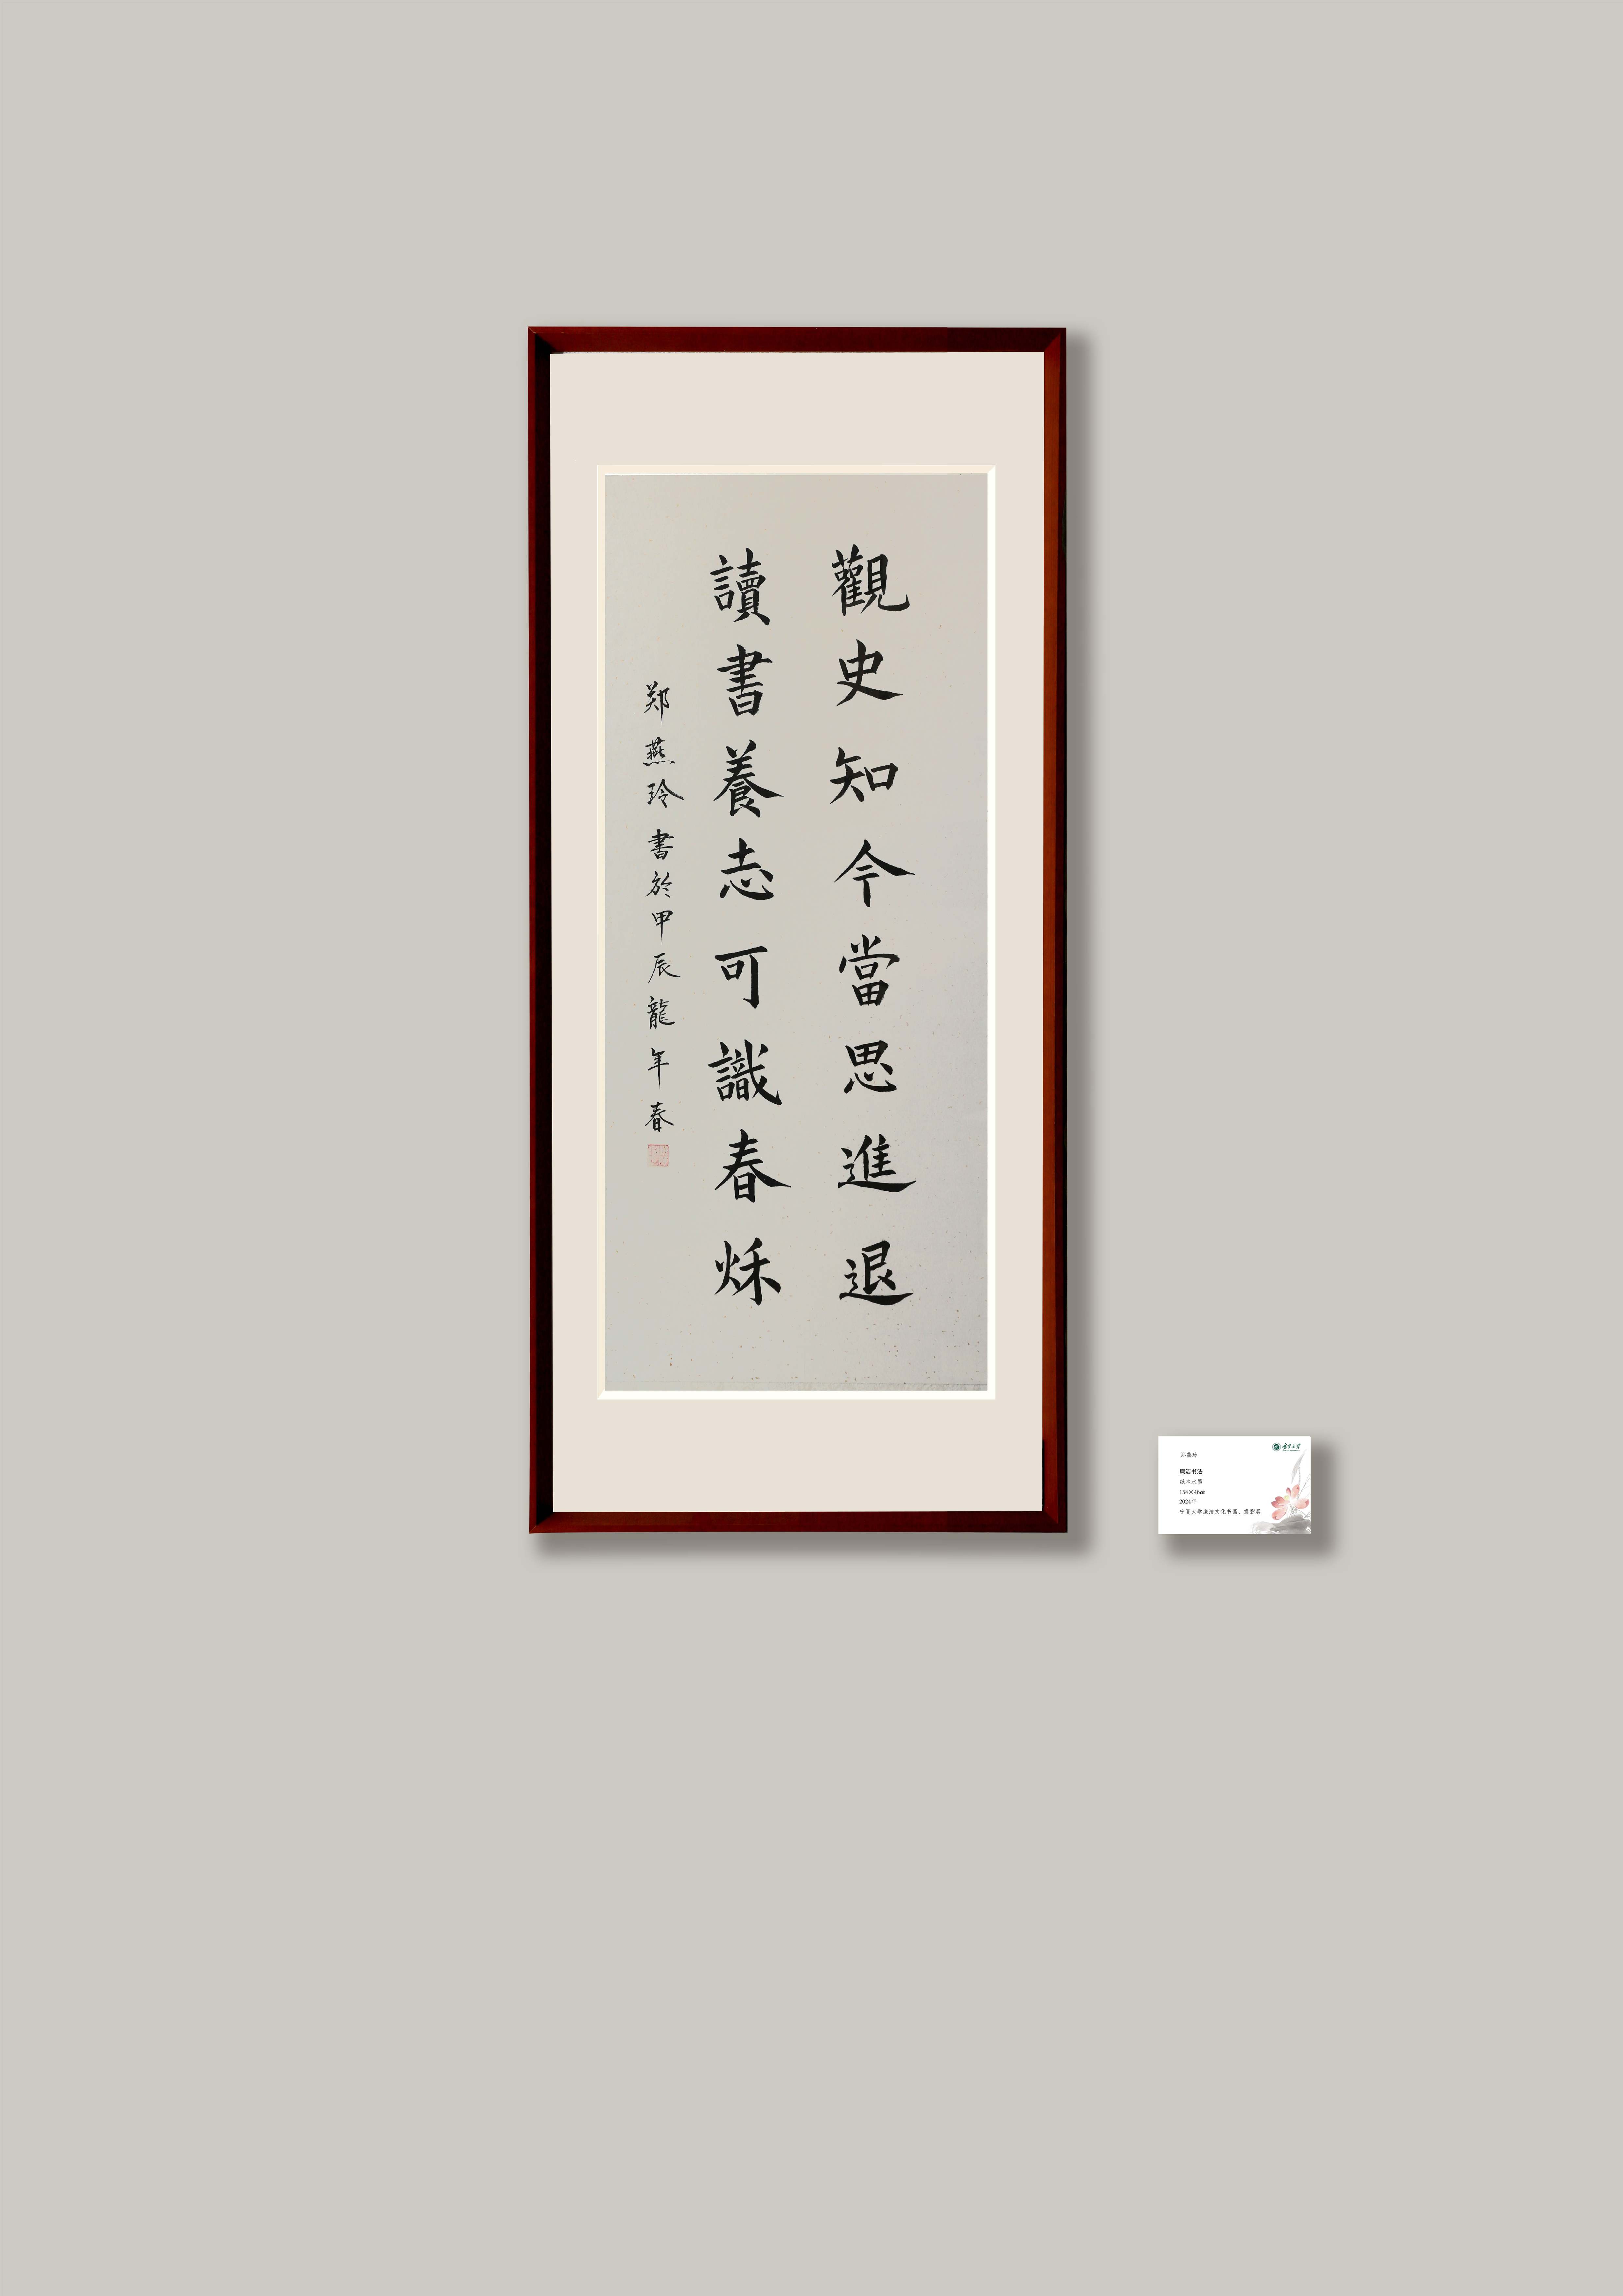 觀史知今當思進退
讀書養志可識春烁
郑燕玲書於甲辰龍年春
郑燕玲
廉洁书法
纸本水墨
154×46cm
2024年
宁夏大学廉洁文化书画、摄影展
宁夏大学